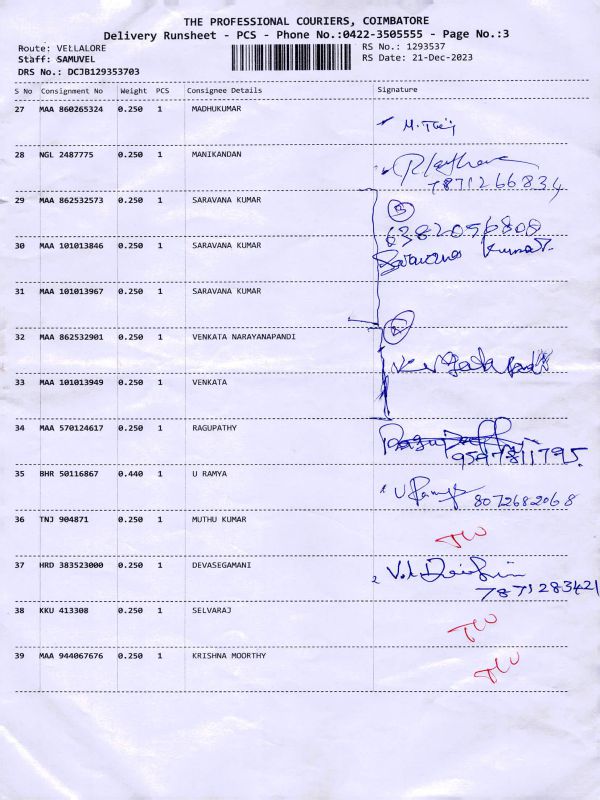 THE PROFESSIONAL COURIERS, COIMBATORE
Delivery Runsheet - PCS - Phone No.:0422-3505555 - Page No.:3
Route: VELLALORE
RS No.: 1293537
Staff: SAMUVEL
RS Date: 21-Dec-2023
DRS No.: DCJB129353703
S No Consignment No Weight PCS Consignee Details Signature
27 MAA 860265324 0.250 1 MADHUKUMAR
28 NGL 2487775 0.250 1 MANIKANDAN
7871266834
29 MAA 862532573 0.250 1 SARAVANA KUMAR
6382056808
30 MAA 101013846 0.250 1 SARAVANA KUMAR Saravana Kumar.
31 MAA 101013967 0.250 1 SARAVANA KUMAR
32 MAA 862532901 0.250 1 VENKATA NARAYANAPANDI
33 MAA 101013949 0.250 1 VENKATA
34 MAA 570124617 0.250 1 RAGUPATHY
9597811795.
35 BHR 50116867 0.440 1 U RAMYA U Ramya 8072682068
36 TNJ 904871 0.250 1 MUTHU KUMAR
37 HRD 383523000 0.250 1 DEVASEGAMANI
7871283421
38 KKU 413308 0.250 1 SELVARAJ
39 MAA 944067676 0.250 1 KRISHNA MOORTHY